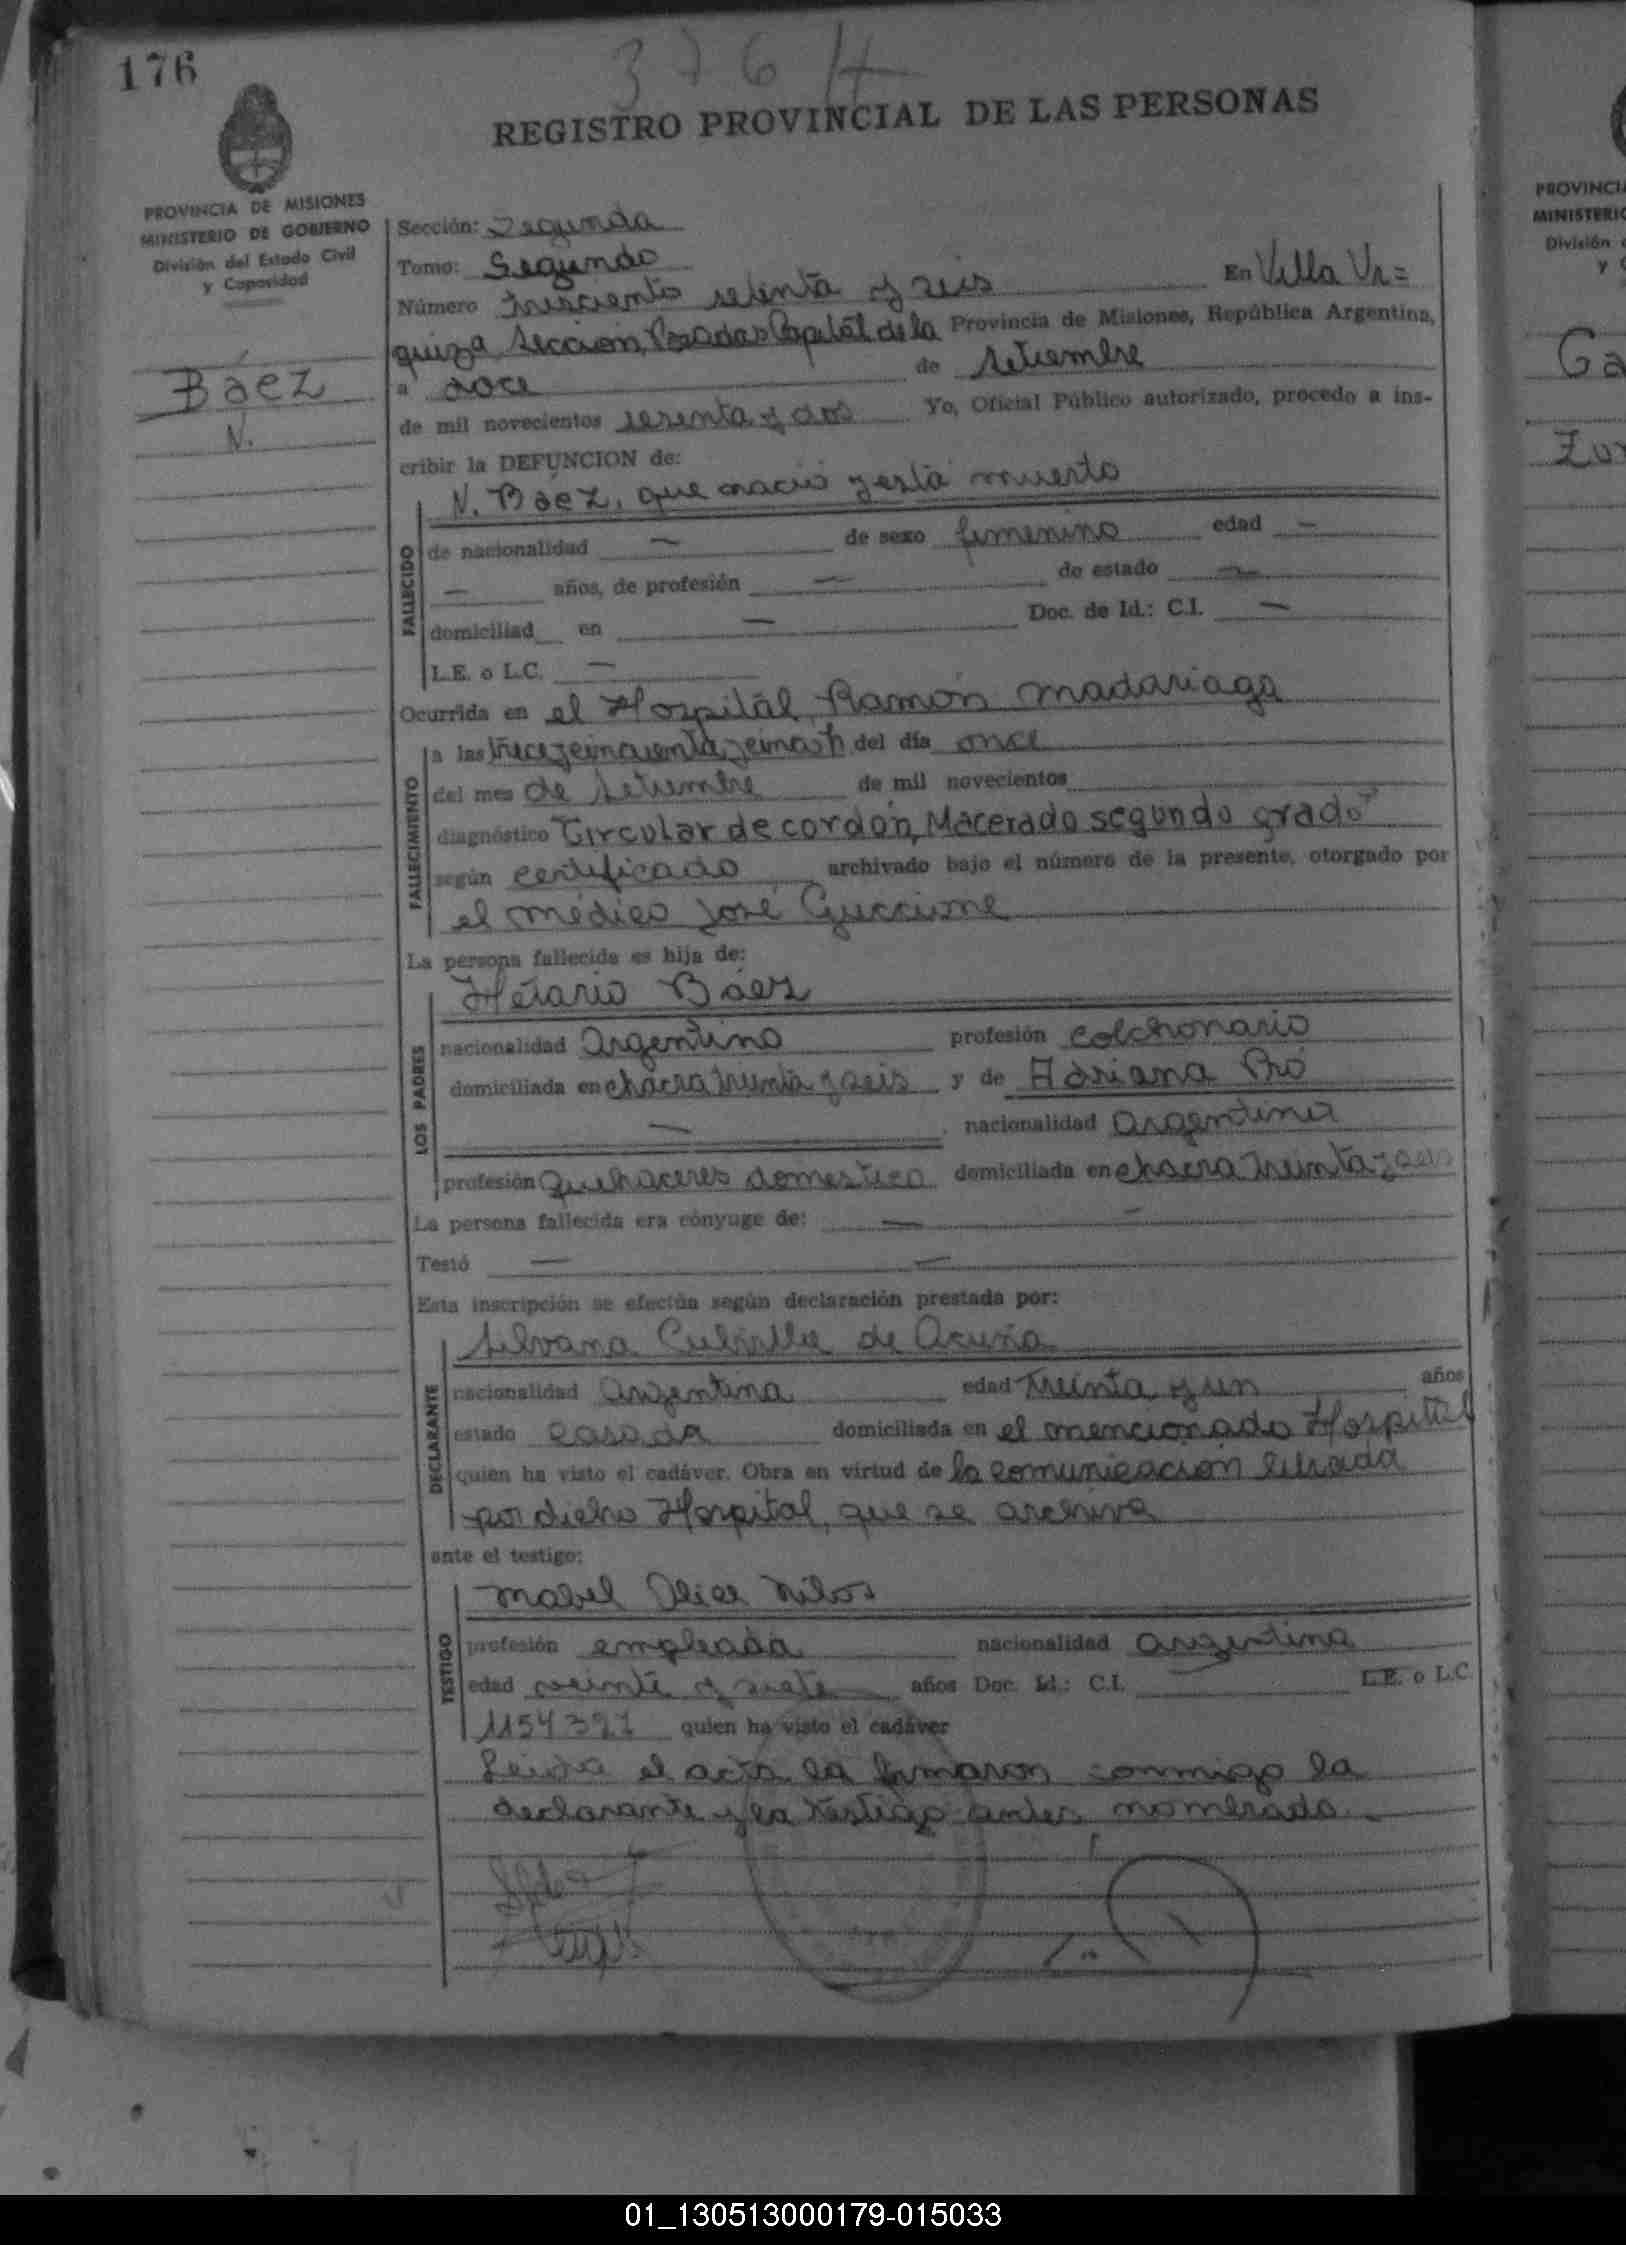 176
376
REGISTRO PROVINCIAL DE LAS PERSONAS
PROVINCIA DE MISIONES
MINISTERIO DE GOBIERNO
División del Estado Civil
y Capacidad
Baez
N.
Sección: Segunda
Tomo: Segundo
Número trescientos setenta y seis En Villa Ur=
quiza Sección, Posadas Capital de la Provincia de Misiones, República Argentina,
a doce de setiembre
de mil novecientos sesenta y dos Yo, Oficial Público autorizado, procedo a ins-
cribir la DEFUNCION de:
N. Báez, que nació y está muerto
FALLECIDO
de nacionalidad — de sexo femenino edad —
— años, de profesión — de estado —
domiciliad en — Doc. de Id.: C.I. —
L.E. o L.C. —
Ocurrida en el Hospital Ramón Madariaga
FALLECIMIENTO
a las trece y cincuenta y cinco h del día once
del mes de setiembre de mil novecientos
diagnóstico Circular de cordón, Macerado segundo grado
según certificado archivado bajo el número de la presente, otorgado por
el médico José Guccione
La persona fallecida es hija de:
LOS PADRES
Báez
nacionalidad Argentino profesión colchonario
domiciliada en chacra treinta y seis y de Adriana
— nacionalidad Argentina
profesión quehaceres domestico domiciliada en chacra treinta y seis
La persona fallecida era cónyuge de: — —
Testó — —
Esta inscripción se efectúa según declaración prestada por:
DECLARANTE
Silvana de Acuña
nacionalidad argentina edad treinta y un años
estado casada domiciliada en el mencionado Hospital
quien ha visto el cadáver. Obra en virtud de la comunicación librada
por dicho Hospital, que se archiva
ante el testigo:
TESTIGO
Mabel
profesión empleada nacionalidad argentina
edad veinte y siete años Doc. Id.: C.I. L.E. o L.C.
quien ha visto el cadáver
Leida el acta la firmaron conmigo la
declarante y la testigo antes nombrado
PROVINCI
MINISTERIO
División
y C
Ga
01_130513000179-015033